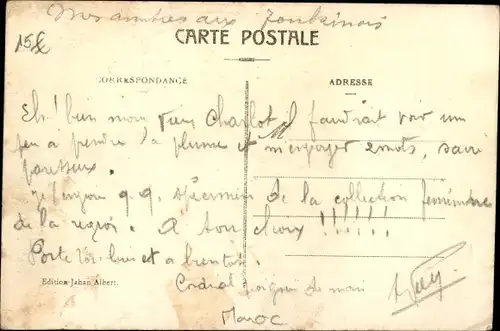 Mes amitiés aux
15€
CARTE POSTALE
CORRESPONDANCE
ADRESSE
Eh ! bien mon vieux Charlot il faudrait voir un
peu a prendre la plume et m'envoyer 2 mots, sacré
paresseux.
je t'envoie q.q. spécimen de la collection féminine
de la région. A ton choix !!!!!!
Porte toi bien et a bientôt.
Edition Jahan Albert.
Cordial poignée de main
Maroc